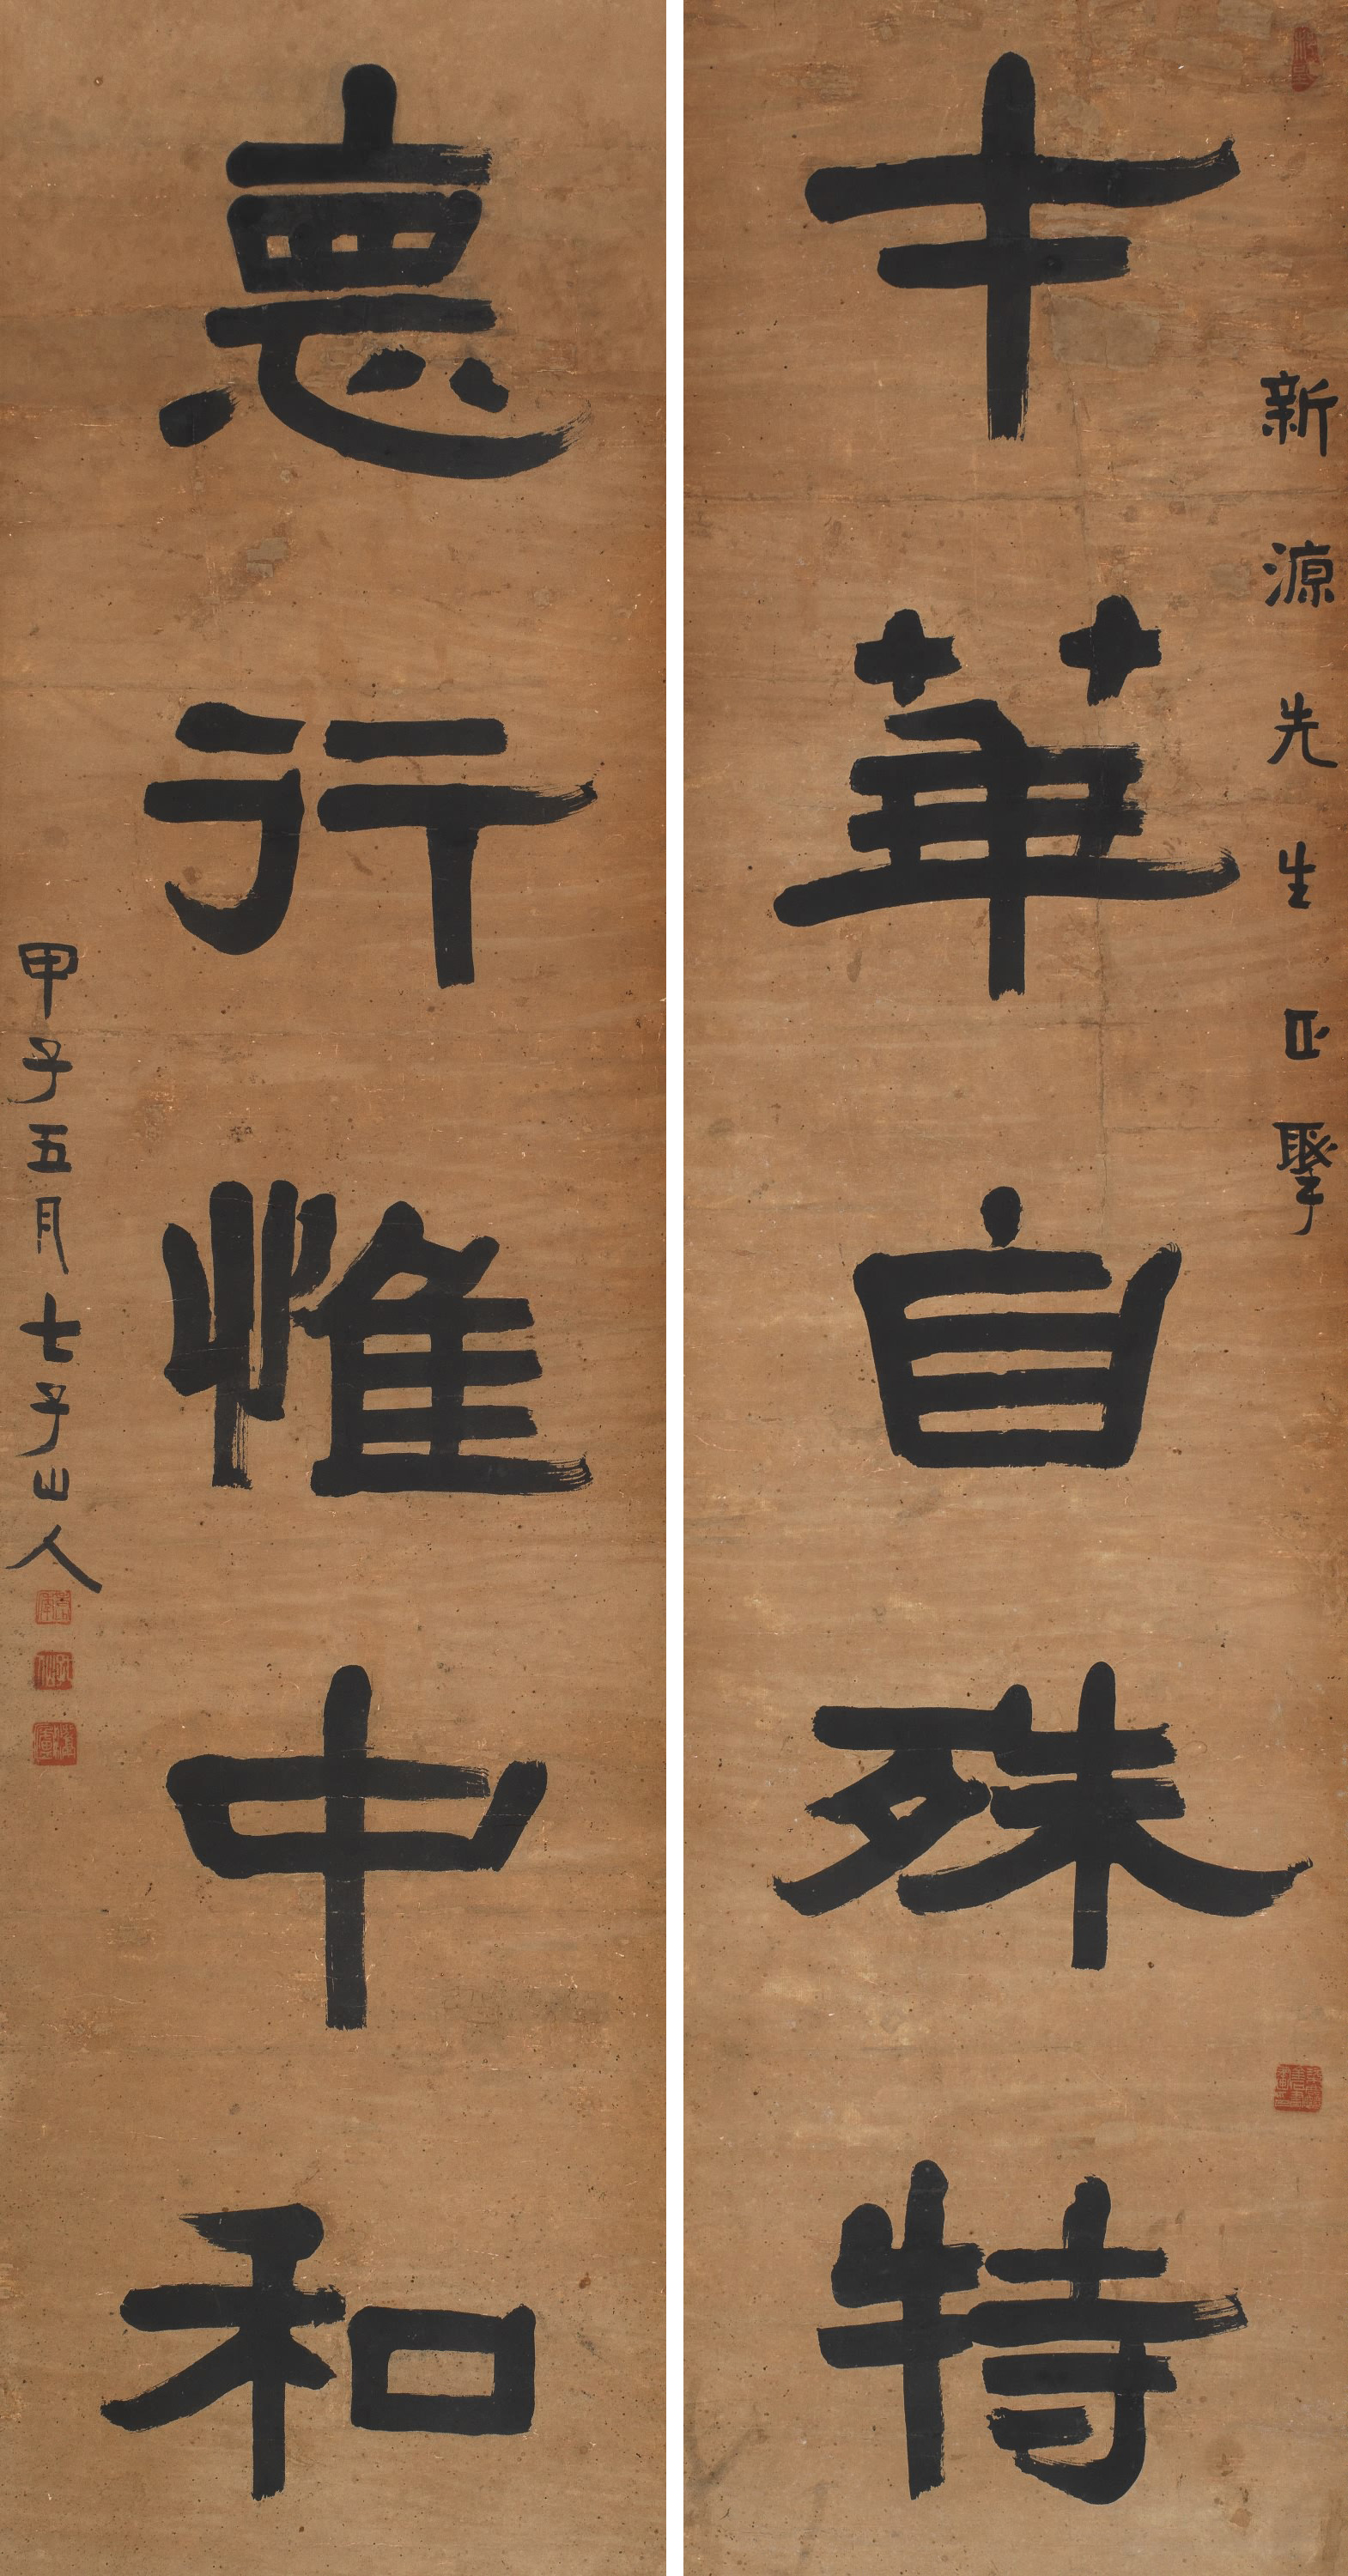 新源先生正擘
才華自殊特
悳行惟中和
甲子五月七子山人